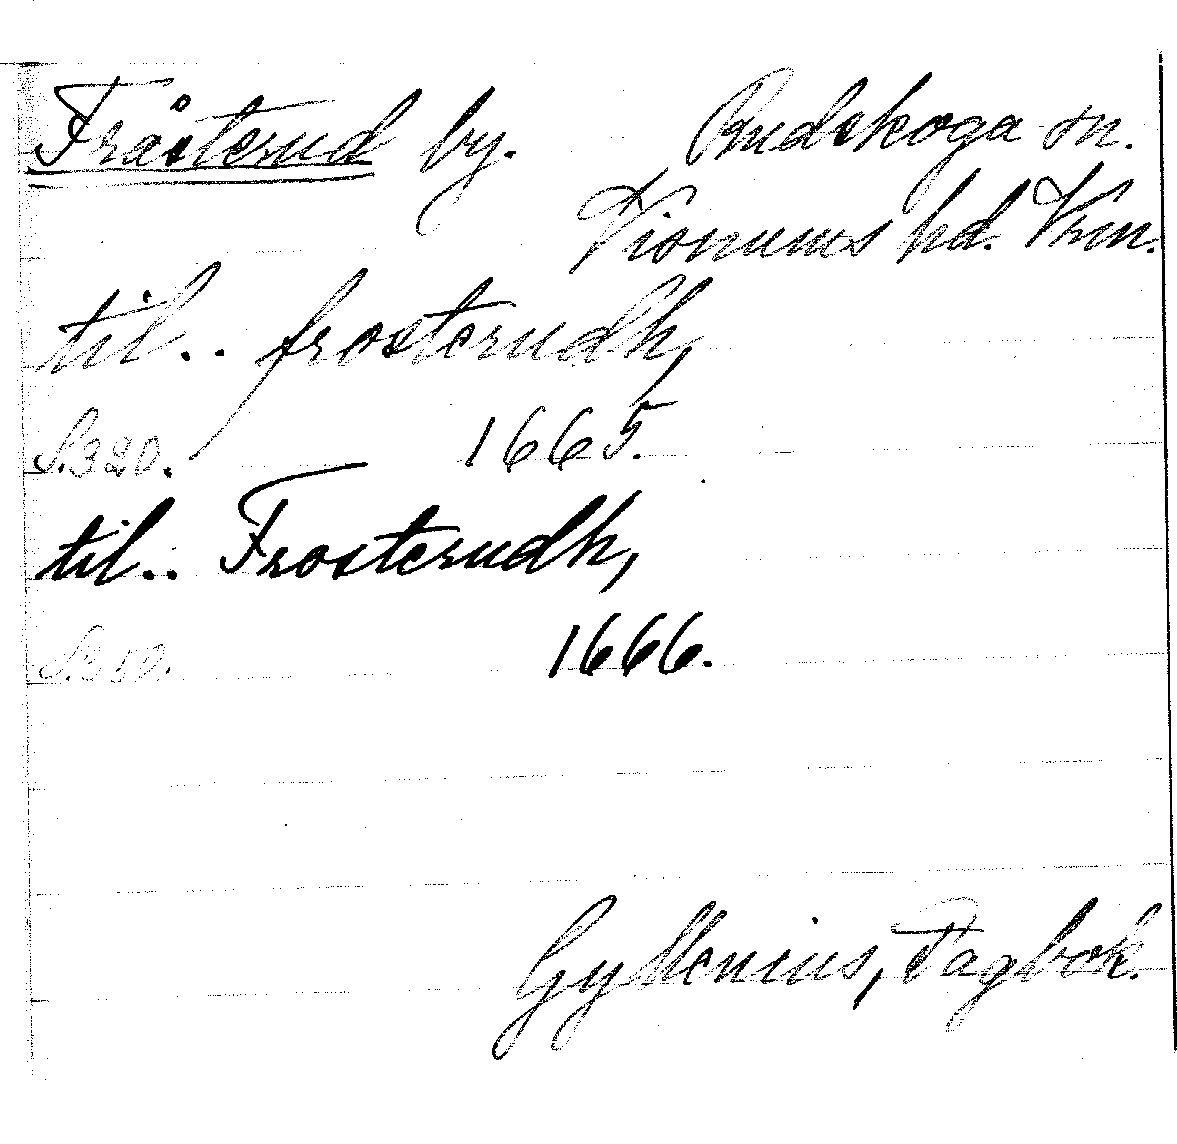 Fråsterud by. Rudskoga sn.
Visnums hd. Vrm.
til.. frosterudh,
S.320. 1665.
til.. Frosterudh,
S.350. 1666.
Gyllenius, Dagbok.